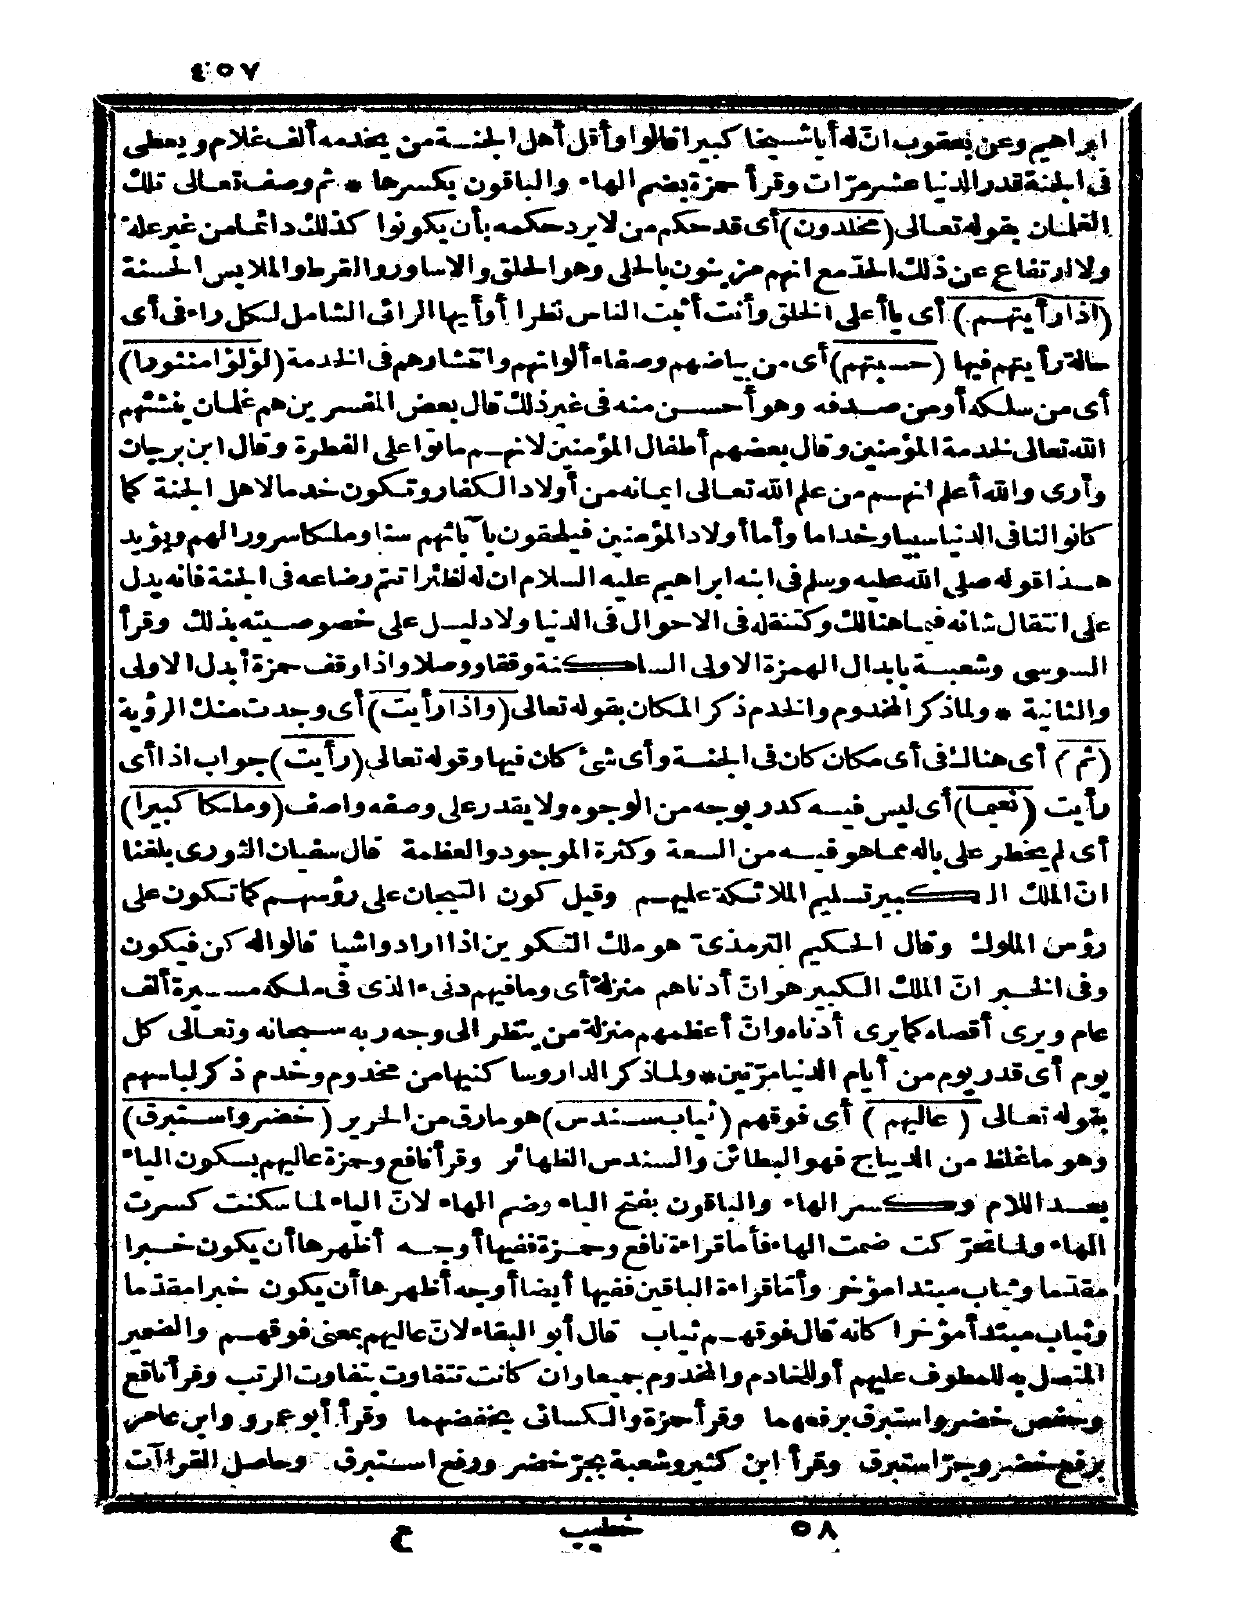 ٤٥٧
ابراهيم وعن يعقوب انّ له أبا شيخا كبيرا قالوا وأقل أهل الجنة من يخدمه ألف غلام ويعطى
فى الجنة قدر الدنيا عشر مرّات وقرأ حمزة بضم الهاء والباقون بكسرها * ثم وصف تعالى تلك
الغلمان بقوله تعالى (مخلدون) أى قد حكم من لا يرد حكمه بأن يكونوا كذلك دائما من غير علة
ولا ارتفاع عن ذلك الحدّ مع انهم مزينون بالحلى وهو الحلق والاساور والقرط والملابس الحسنة
(اذا رأيتهم) أى يا أعلى الخلق وأنت أثبت الناس نظرا أو أيها الرائى الشامل لكل راء فى أى
حالة رأيتهم فيها (حسبتهم) أى من بياضهم وصفاء ألوانهم وانتشارهم فى الخدمة (لؤلؤا منثورا)
أى من سلكه أو من صدفه وهو أحسن منه فى غير ذلك قال بعض المفسرين هم غلمان ينشئهم
الله تعالى لخدمة المؤمنين وقال بعضهم أطفال المؤمنين لانهم ماتوا على الفطرة وقال ابن برجان
وأرى والله أعلم انهم من علم الله تعالى ايمانه من أولاد الكفار وتكون خدما لاهل الجنة كما
كانوا لنا فى الدنيا سبيا وخداما وأما أولاد المؤمنين فيلحقون بآبائهم سنا وملكا سرورا لهم ويؤيد
هذا قوله صلى الله عليه وسلم فى ابنه ابراهيم عليه السلام ان له لظئرا تتم رضاعه فى الجنة فانه يدل
على انتقال شانه فيما هنالك وكتنقله فى الاحوال فى الدنيا ولا دليل على خصوصيته بذلك وقرأ
السوسى وشعبة بابدال الهمزة الاولى الساكنة وقفا ووصلا واذا وقف حمزة أبدل الاولى
والثانية * ولما ذكر المخدوم والخدم ذكر المكان بقوله تعالى (واذا رأيت) أى وجدت منك الرؤية
(ثم) أى هناك فى أى مكان كان فى الجنة وأى شئ كان فيها وقوله تعالى (رأيت) جواب اذا أى
رأيت (نعيما) أى ليس فيه كدر بوجه من الوجوه ولا يقدر على وصفه واصف (وملكا كبيرا)
أى لم يخطر على باله مما هو فيه من السعة وكثرة الموجود والعظمة قال سفيان الثورى بلغنا
انّ الملك الكبير تسليم الملائكة عليهم وقيل كون التيجان على رؤسهم كما تكون على
رؤس الملوك وقال الحكيم الترمذى هو ملك التكوين اذا ارادوا شيا قالوا له كن فيكون
وفى الخبر انّ الملك الكبير هو انّ أدناهم منزلة أى وما فيهم دنىء الذى فى ملكه مسيرة ألف
عام ويرى أقصاه كما يرى أدناه وانّ أعظمهم منزلة من ينظر الى وجه ربه سبحانه وتعالى كل
يوم أى قدر يوم من أيام الدنيا مرّتين * ولما ذكر الدار وساكنيها من مخدوم وخدم ذكر لباسهم
بقوله تعالى (عاليهم) أى فوقهم (ثياب سندس) هو مارق من الحرير (خضر واستبرق)
وهو ما غلظ من الديباج فهو البطائن والسندس الظهائر وقرأ نافع وحمزة عاليهم بسكون الياء
بعد اللام وكسر الهاء والباقون بفتح الياء وضم الهاء لانّ الياء لما سكنت كسرت
الهاء ولما تحرّكت ضمت الهاء فأما قراءة نافع وحمزة ففيها أوجه أظهرها أن يكون خبرا
مقدّما وثياب مبتدا مؤخر وأمّا قراءة الباقين ففيها أيضا أوجه أظهرها أن يكون خبرا مقدّما
وثياب مبتدأ مؤخرا كانه قال فوقهم ثياب قال أبو البقاء لانّ عاليهم بمعنى فوقهم والضمير
المتصل به للمطوف عليهم أو للخادم والمخدوم جميعا وان كانت تتفاوت بتفاوت الرتب وقرأ نافع
وحفص خضر واستبرق برفعهما وقرأ حمزة والكسائى بخفضهما وقرأ أبو عمرو وابن عامر
برفع خضر وجرّ استبرق وقرأ ابن كثير وشعبة بجرّ خضر ورفع استبرق وحاصل القراآت
٥٨ خطيب ع